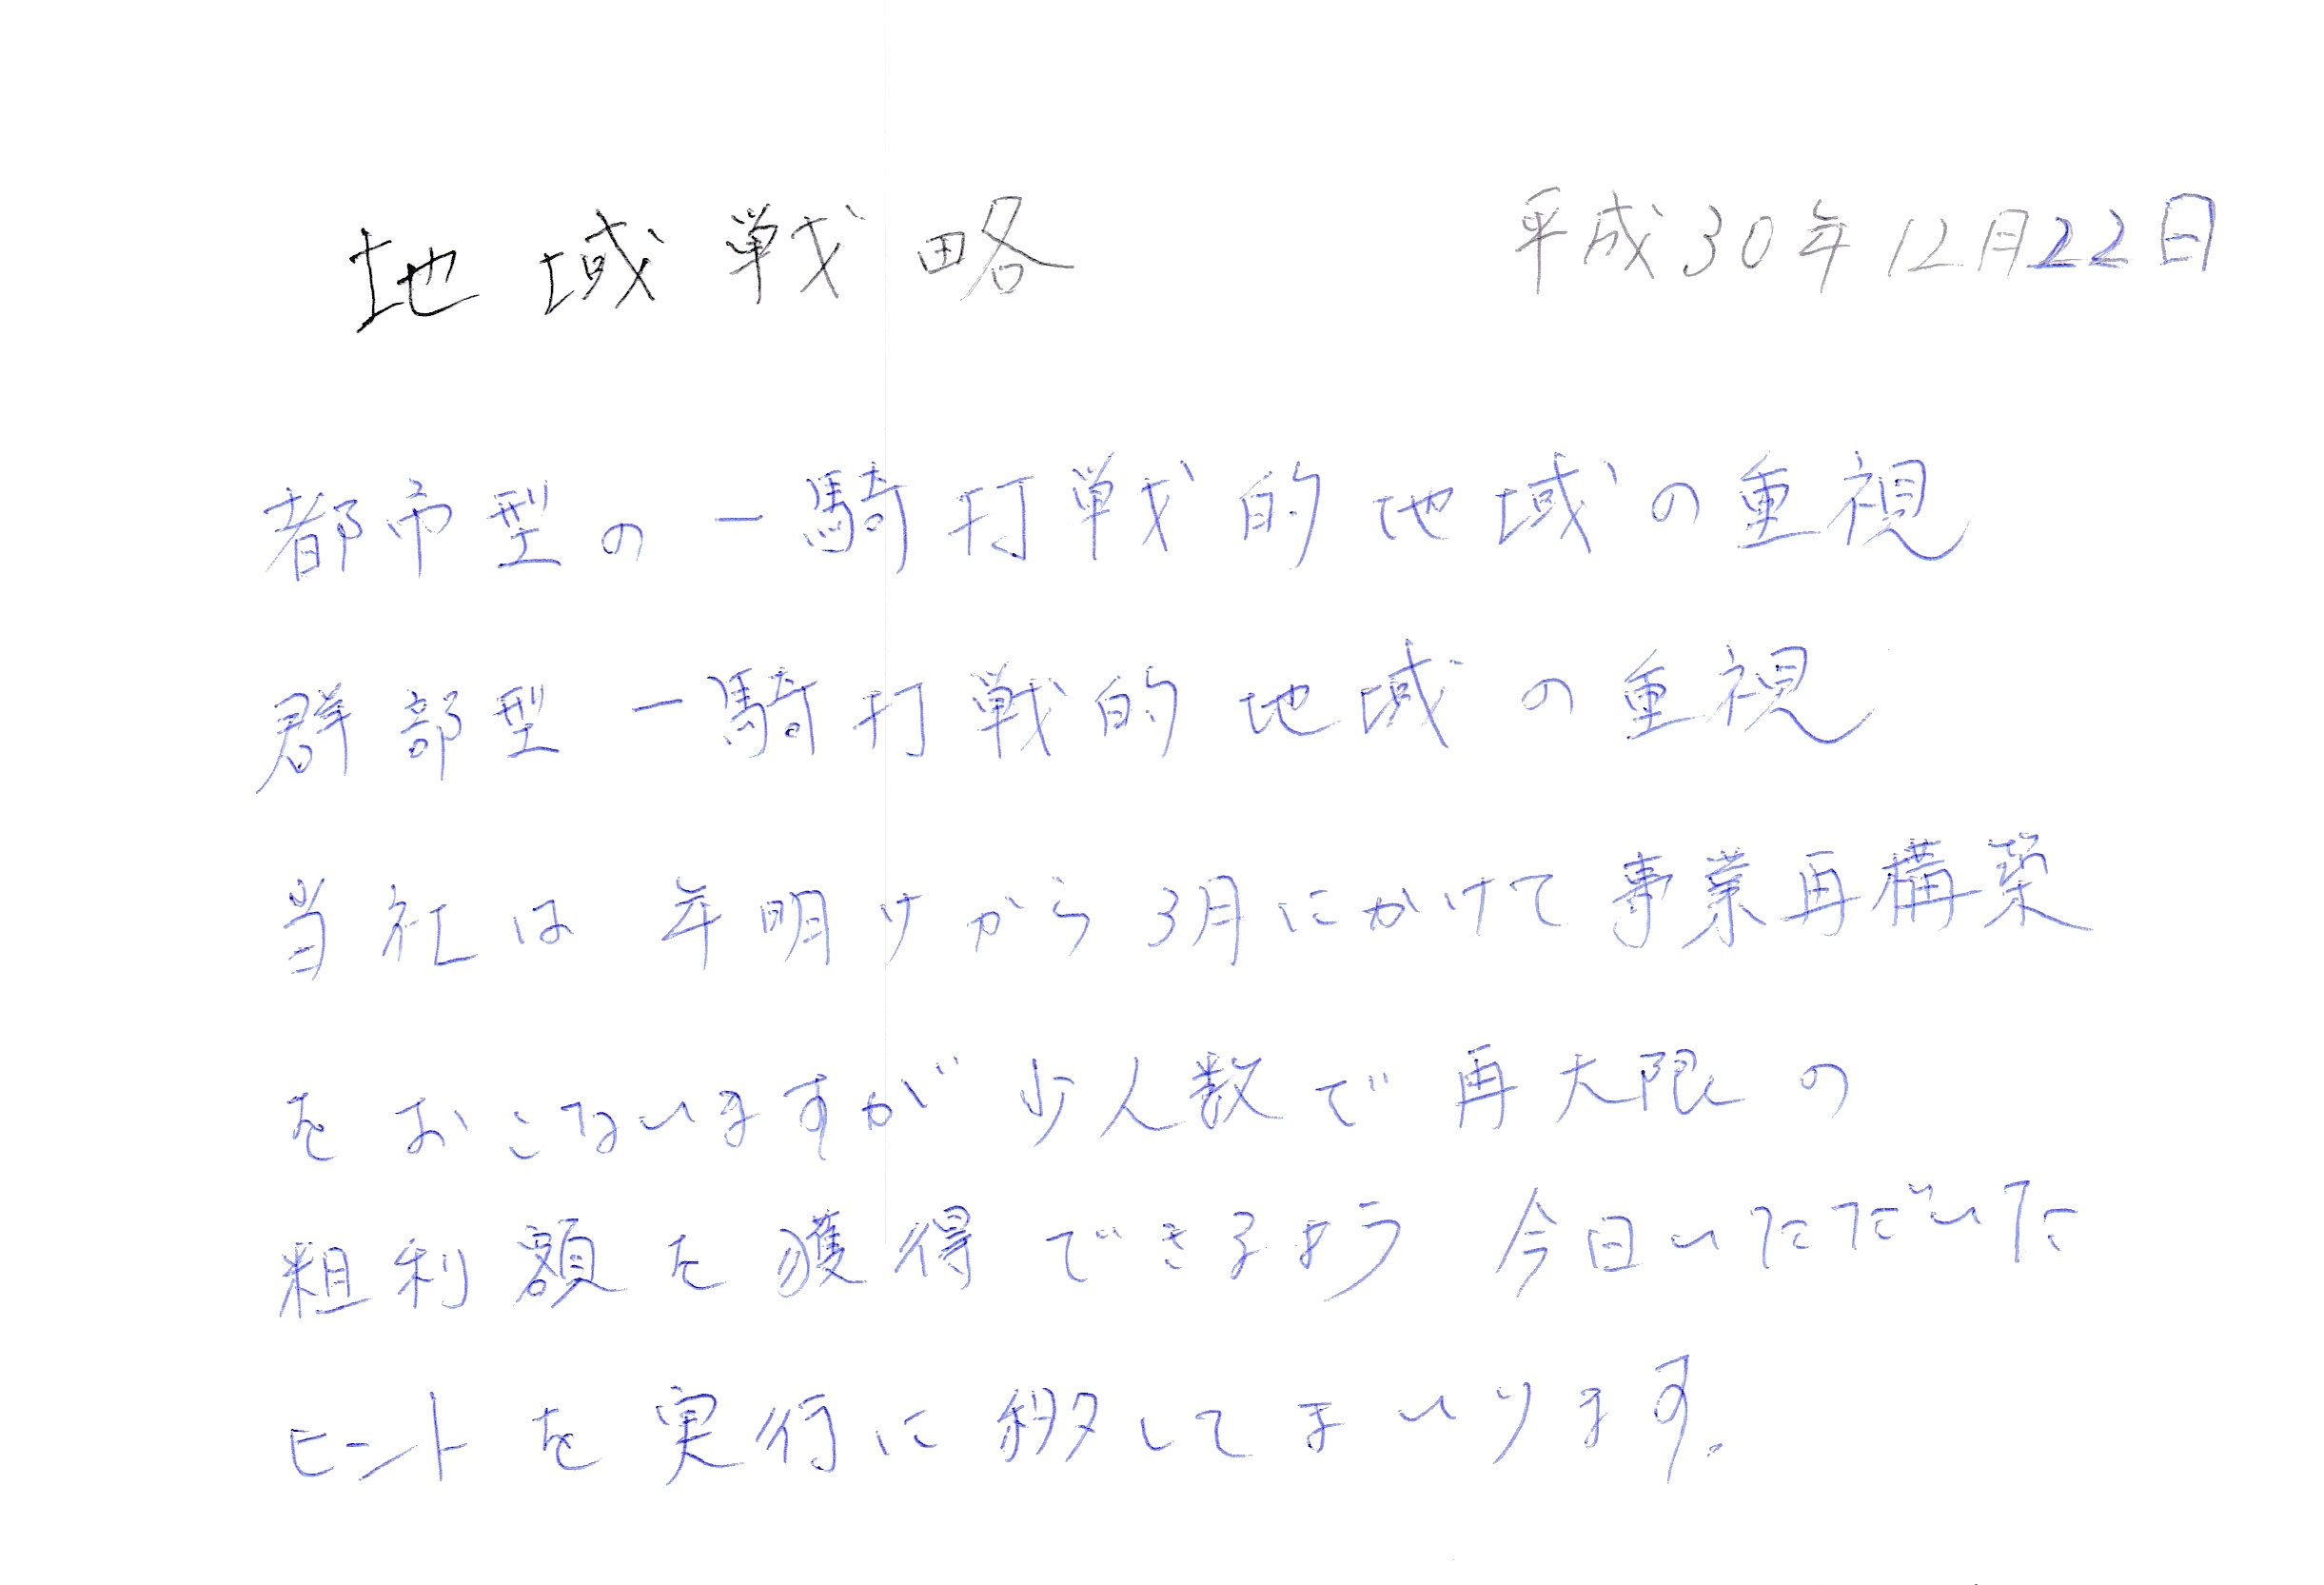 地域戦略 平成30年12月22日
都市型の一騎打戦的地域の重視
群部型一騎打戦的地域の重視
当社は年明けから3月にかけて事業再構築
をおこないますが少人数で再大限の
粗利額を獲得できるよう今日いただいた
ヒントを実行に移してまいります。